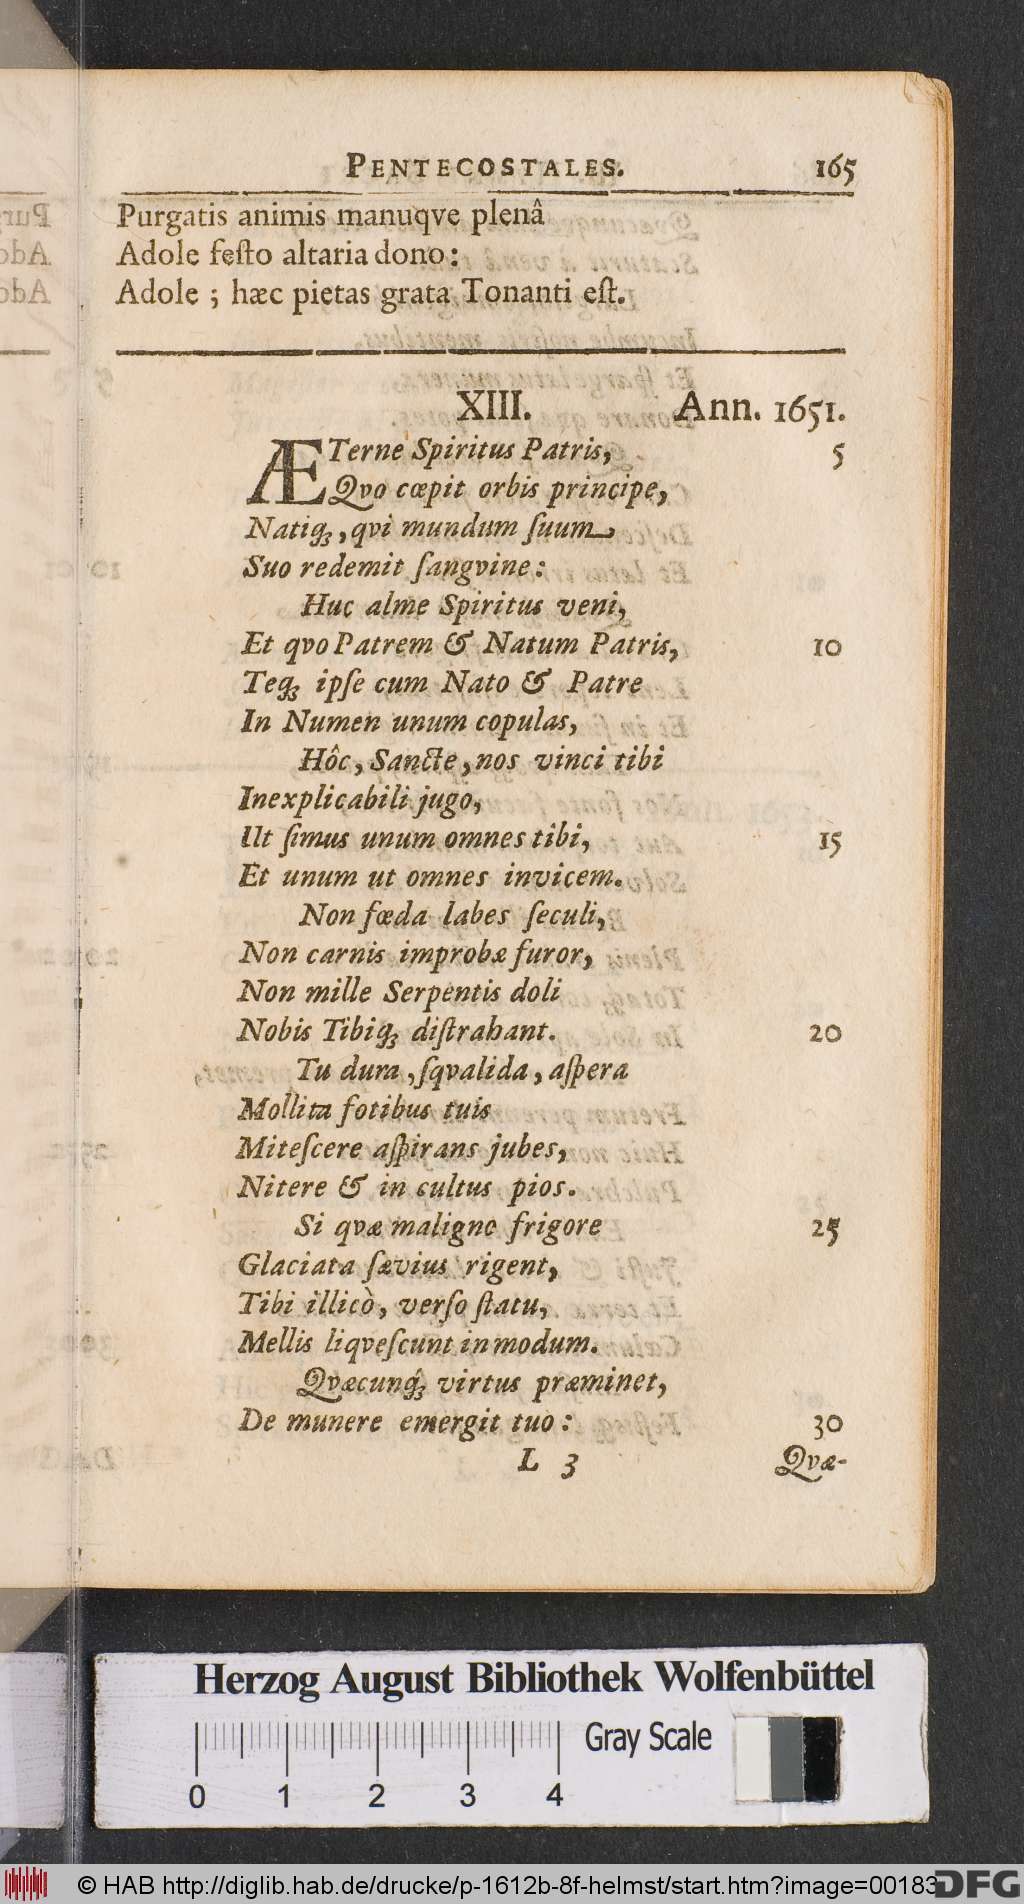 PENTECOSTALES. 165
Purgatis animis manuqve plenâ
Adole feſto altaria dono:
Adole ; hæc pietas grata Tonanti eſt.
XIII. Ann. 1651.
ÆTerne Spiritus Patris, 5
Qvo cœpit orbis principe,
Natiq́;, qvi mundum ſuum
Suo redemit ſangvine:
Huc alme Spiritus veni,
Et qvo Patrem & Natum Patris, 10
Teq́; ipſe cum Nato & Patre
In Numen unum copulas,
Hôc, Sancte, nos vinci tibi
Inexplicabili jugo,
Ut ſimus unum omnes tibi, 15
Et unum ut omnes invicem.
Non fœda labes ſeculi,
Non carnis improbæ furor,
Non mille Serpentis doli
Nobis Tibiq́; diſtrahant. 20
Tu dura, ſqvalida, aſpera
Mollita fotibus tuis
Miteſcere aſpirans jubes,
Nitere & in cultus pios.
Si qvæ maligno frigore 25
Glaciata ſævius rigent,
Tibi illicò, verſo ſtatu,
Mellis liqveſcunt in modum.
Qvæcunq́; virtus præminet,
De munere emergit tuo: 30
L 3 Qvæ-
Herzog August Bibliothek Wolfenbüttel
Gray Scale
0 1 2 3 4
© HAB http://diglib.hab.de/drucke/p-1612b-8f-helmst/start.htm?image=00183
DFG